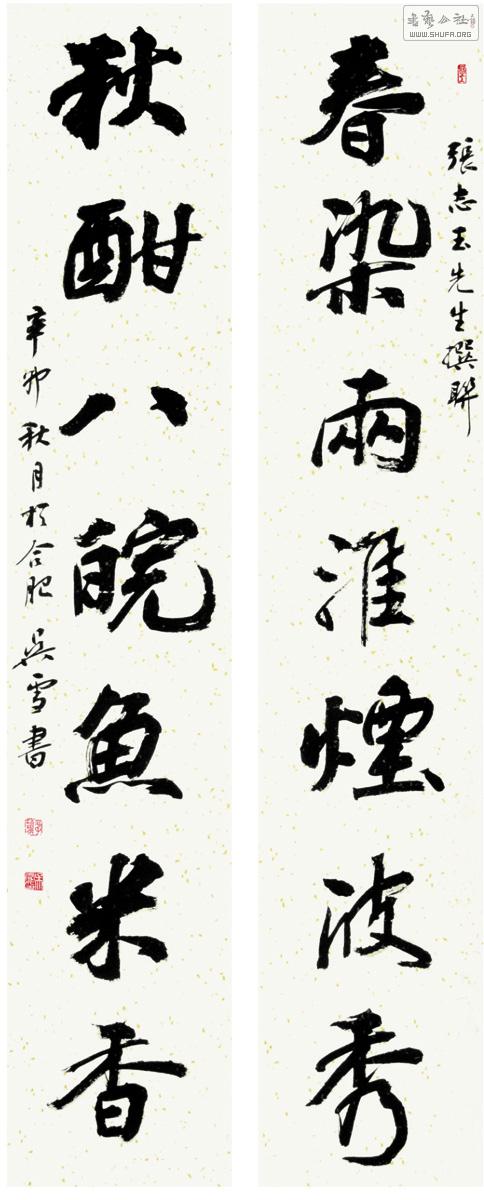 張志玉先生撰聯
春染兩淮煙波秀
秋酣八皖魚米香
辛卯秋月於合肥 吳雪書
書藝公社
WWW.SHUFA.ORG